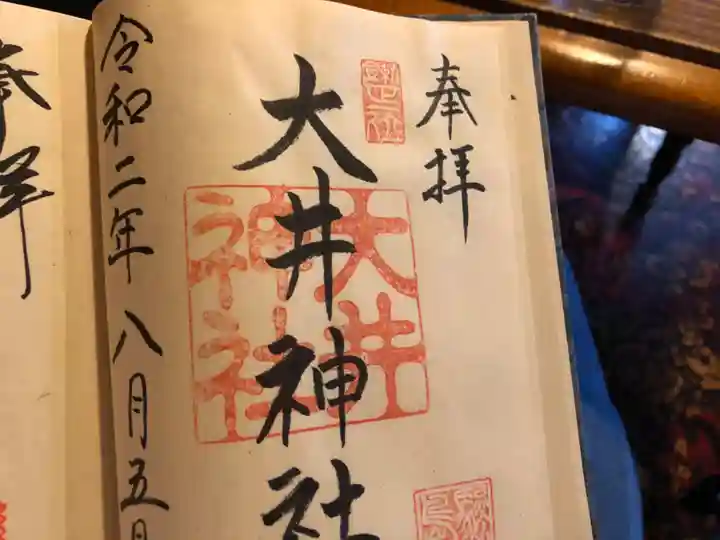 奉拝
大井神社
大井神社
令和二年八月五日
奉拝